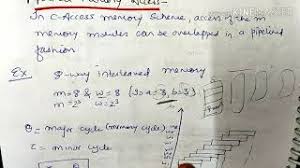 KINEMASTER
Memory Access-
In C-Access memory Scheme, access of the m
memory modules can be overlapped in a pipelined
fashion.
Ex 8-way interleaved memory
m=8 & w=8 (
m=2³ w=2³
θ = major cycle (memory cycle)
τ = minor cycle